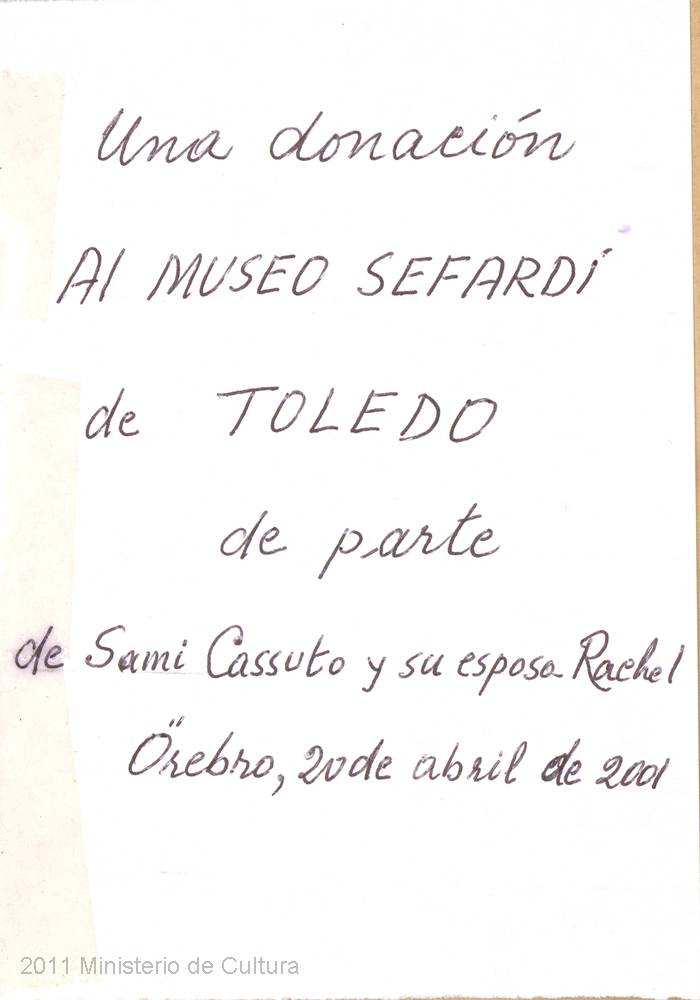 Una donación
Al MUSEO SEFARDÍ
de TOLEDO
de parte
de Sami Cassuto y su esposa Rachel
Örebro, 20 de abril de 2001
2011 Ministerio de Cultura